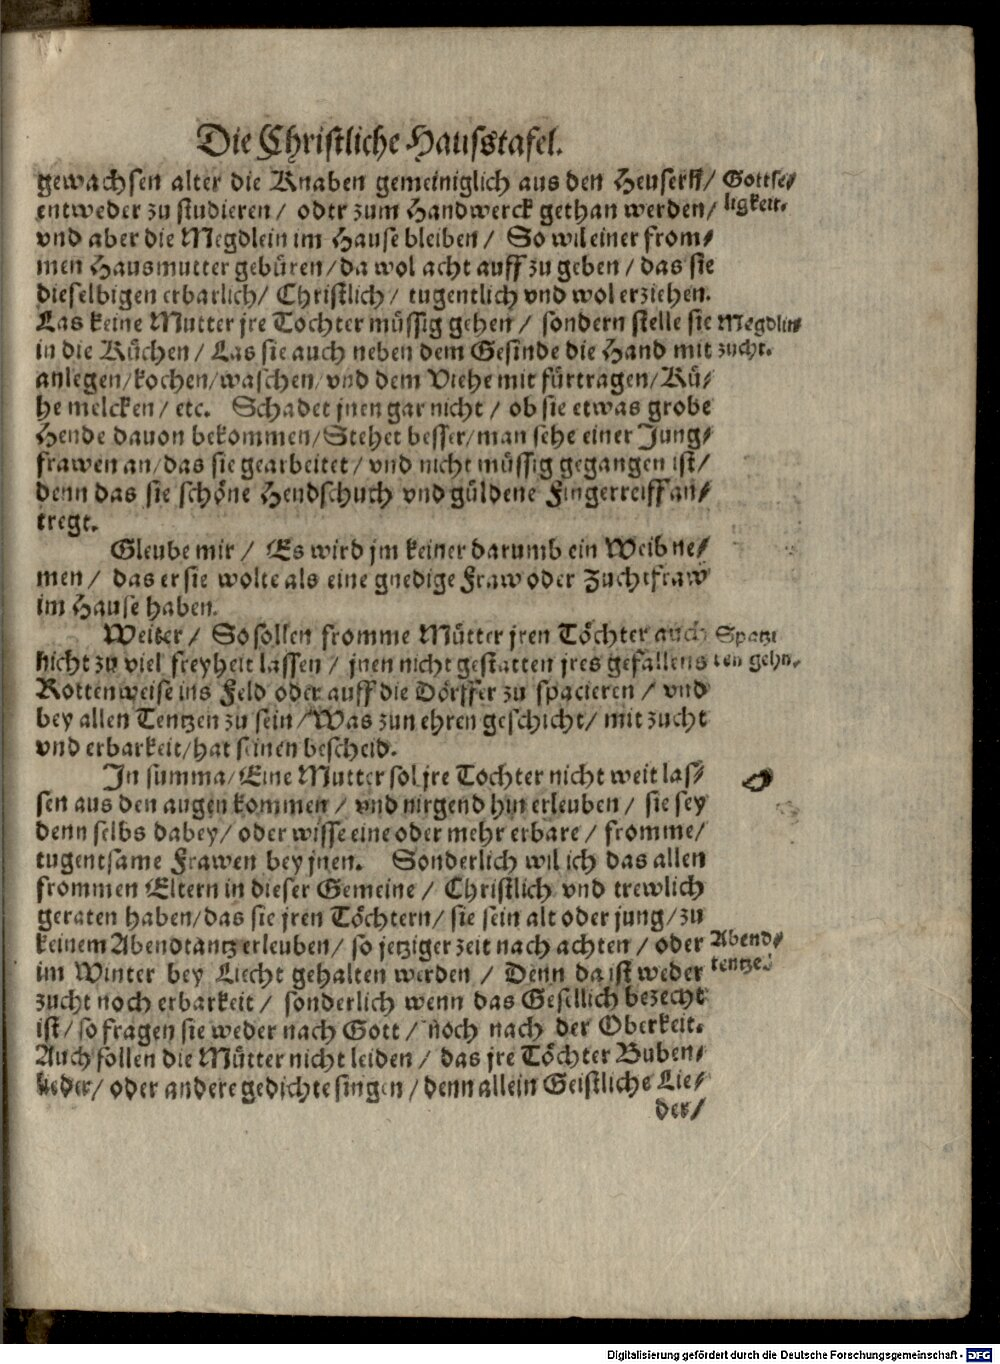 Die Christliche Hausstafel.
gewachsen alter die Knaben gemeiniglich aus den Heusern/
entweder zu studieren / oder zum Handwerck gethan werden/
vnd aber die Megdlein im Hause bleiben / So wil einer from/
men Hausmutter gebüren/da wol acht auff zu geben / das sie
dieselbigen erbarlich/ Christlich / tugentlich vnd wol erziehen.
Gottse/
ligkeit.
Las keine Mutter jre Tochter müssig gehen / sondern stelle sie
in die Küchen / Las sie auch neben dem Gesinde die Hand mit
anlegen/kochen/waschen/vnd dem Viehe mit fürtragen/Kü/
he melcken / etc. Schadet jnen gar nicht / ob sie etwas grobe
Hende dauon bekommen/Stehet besser/man sehe einer Jung/
frawen an/das sie gearbeitet / vnd nicht müssig gegangen ist/
denn das sie schöne Hendschuch vnd güldene Fingerreiff an/
tregt.
Megdlin
zucht.
Gleube mir / Es wird jm keiner darumb ein Weib ne/
men / das er sie wolte als eine gnedige Fraw oder Zuchtfraw
im Hause haben.
Weiter / So sollen fromme Mütter jren Töchter auch
nicht zu viel freyheit lassen / jnen nicht gestatten jres gefallens
Rottenweise ins Feld oder auff die Dörffer zu spacieren / vnd
bey allen Tentzen zu sein/Was zun ehren geschicht/ mit zucht
vnd erbarkeit/hat seinen bescheid.
Spatzi
ren gehn.
In summa/Eine Mutter sol jre Tochter nicht weit las/
sen aus den augen kommen / vnd nirgend hin erleuben / sie sey
denn selbs dabey/ oder wisse eine oder mehr erbare / fromme/
tugentsame Frawen bey jnen. Sonderlich wil ich das allen
frommen Eltern in dieser Gemeine / Christlich vnd trewlich
geraten haben/das sie jren Töchtern/ sie sein alt oder jung/zu
keinem Abendtantz erleuben/ so jetziger zeit nach achten / oder
im Winter bey Liecht gehalten werden / Denn da ist weder
zucht noch erbarkeit / sonderlich wenn das Gesellich bezecht
ist/ so fragen sie weder nach Gott / noch nach der Oberkeit.
Auch sollen die Mütter nicht leiden / das jre Töchter Buben/
lieder/ oder andere gedichte singen / denn allein Geistliche Lie/
Abend/
tentze.
der/
Digitalisierung gefördert durch die Deutsche Forschungsgemeinschaft - DFG